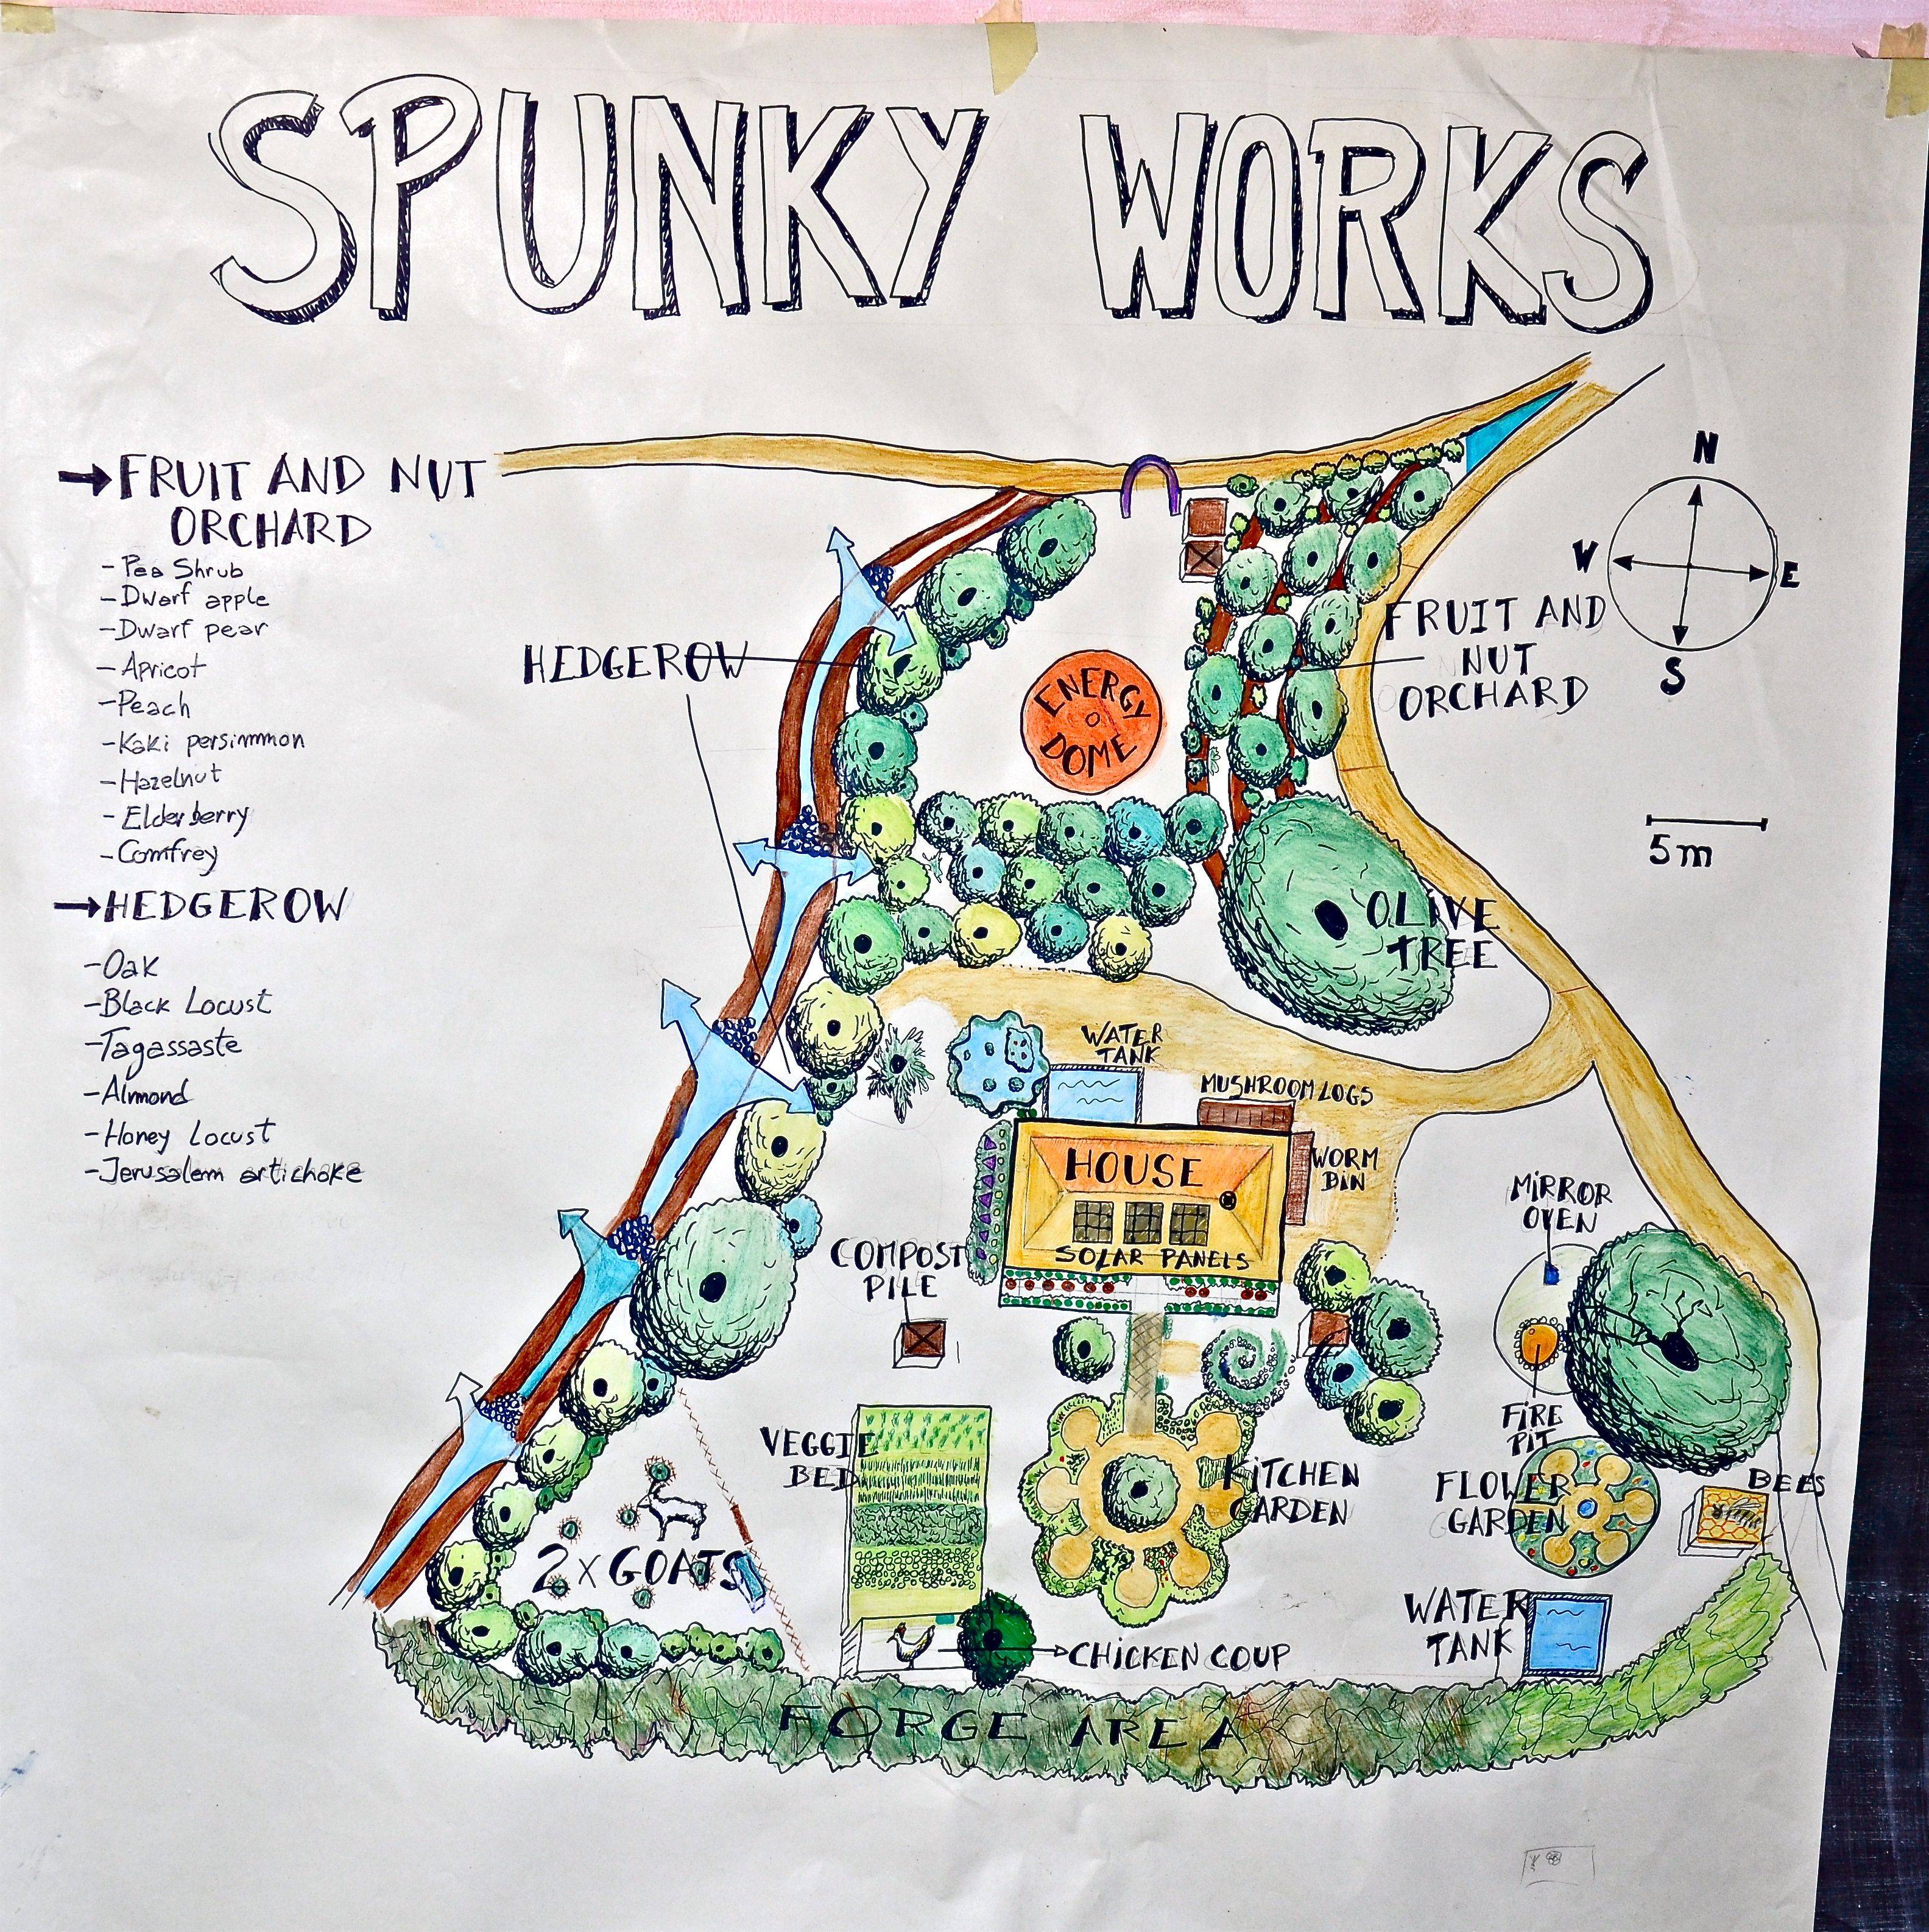 SPUNKY WORKS
→FRUIT AND NUT
ORCHARD
-Pea Shrub
-Dwarf apple
-Dwarf pear
-Apricot
-Peach
-Kaki persimmon
-Hazelnut
-Elderberry
-Comfrey
→HEDGEROW
-Oak
-Black Locust
-Tagassaste
-Almond
-Honey Locust
-Jerusalem artichoke
N
W
E
S
5m
HEDGEROW
ENERGY
DOME
FRUIT AND
NUT
ORCHARD
OLIVE
TREE
WATER
TANK
MUSHROOM LOGS
HOUSE
SOLAR PANELS
WORM
BIN
MIRROR
OVEN
COMPOST
PILE
FIRE
PIT
VEGGIE
BED
KITCHEN
GARDEN
FLOWER
GARDEN
BEES
2 x GOATS
WATER
TANK
CHICKEN COUP
FORGE AREA